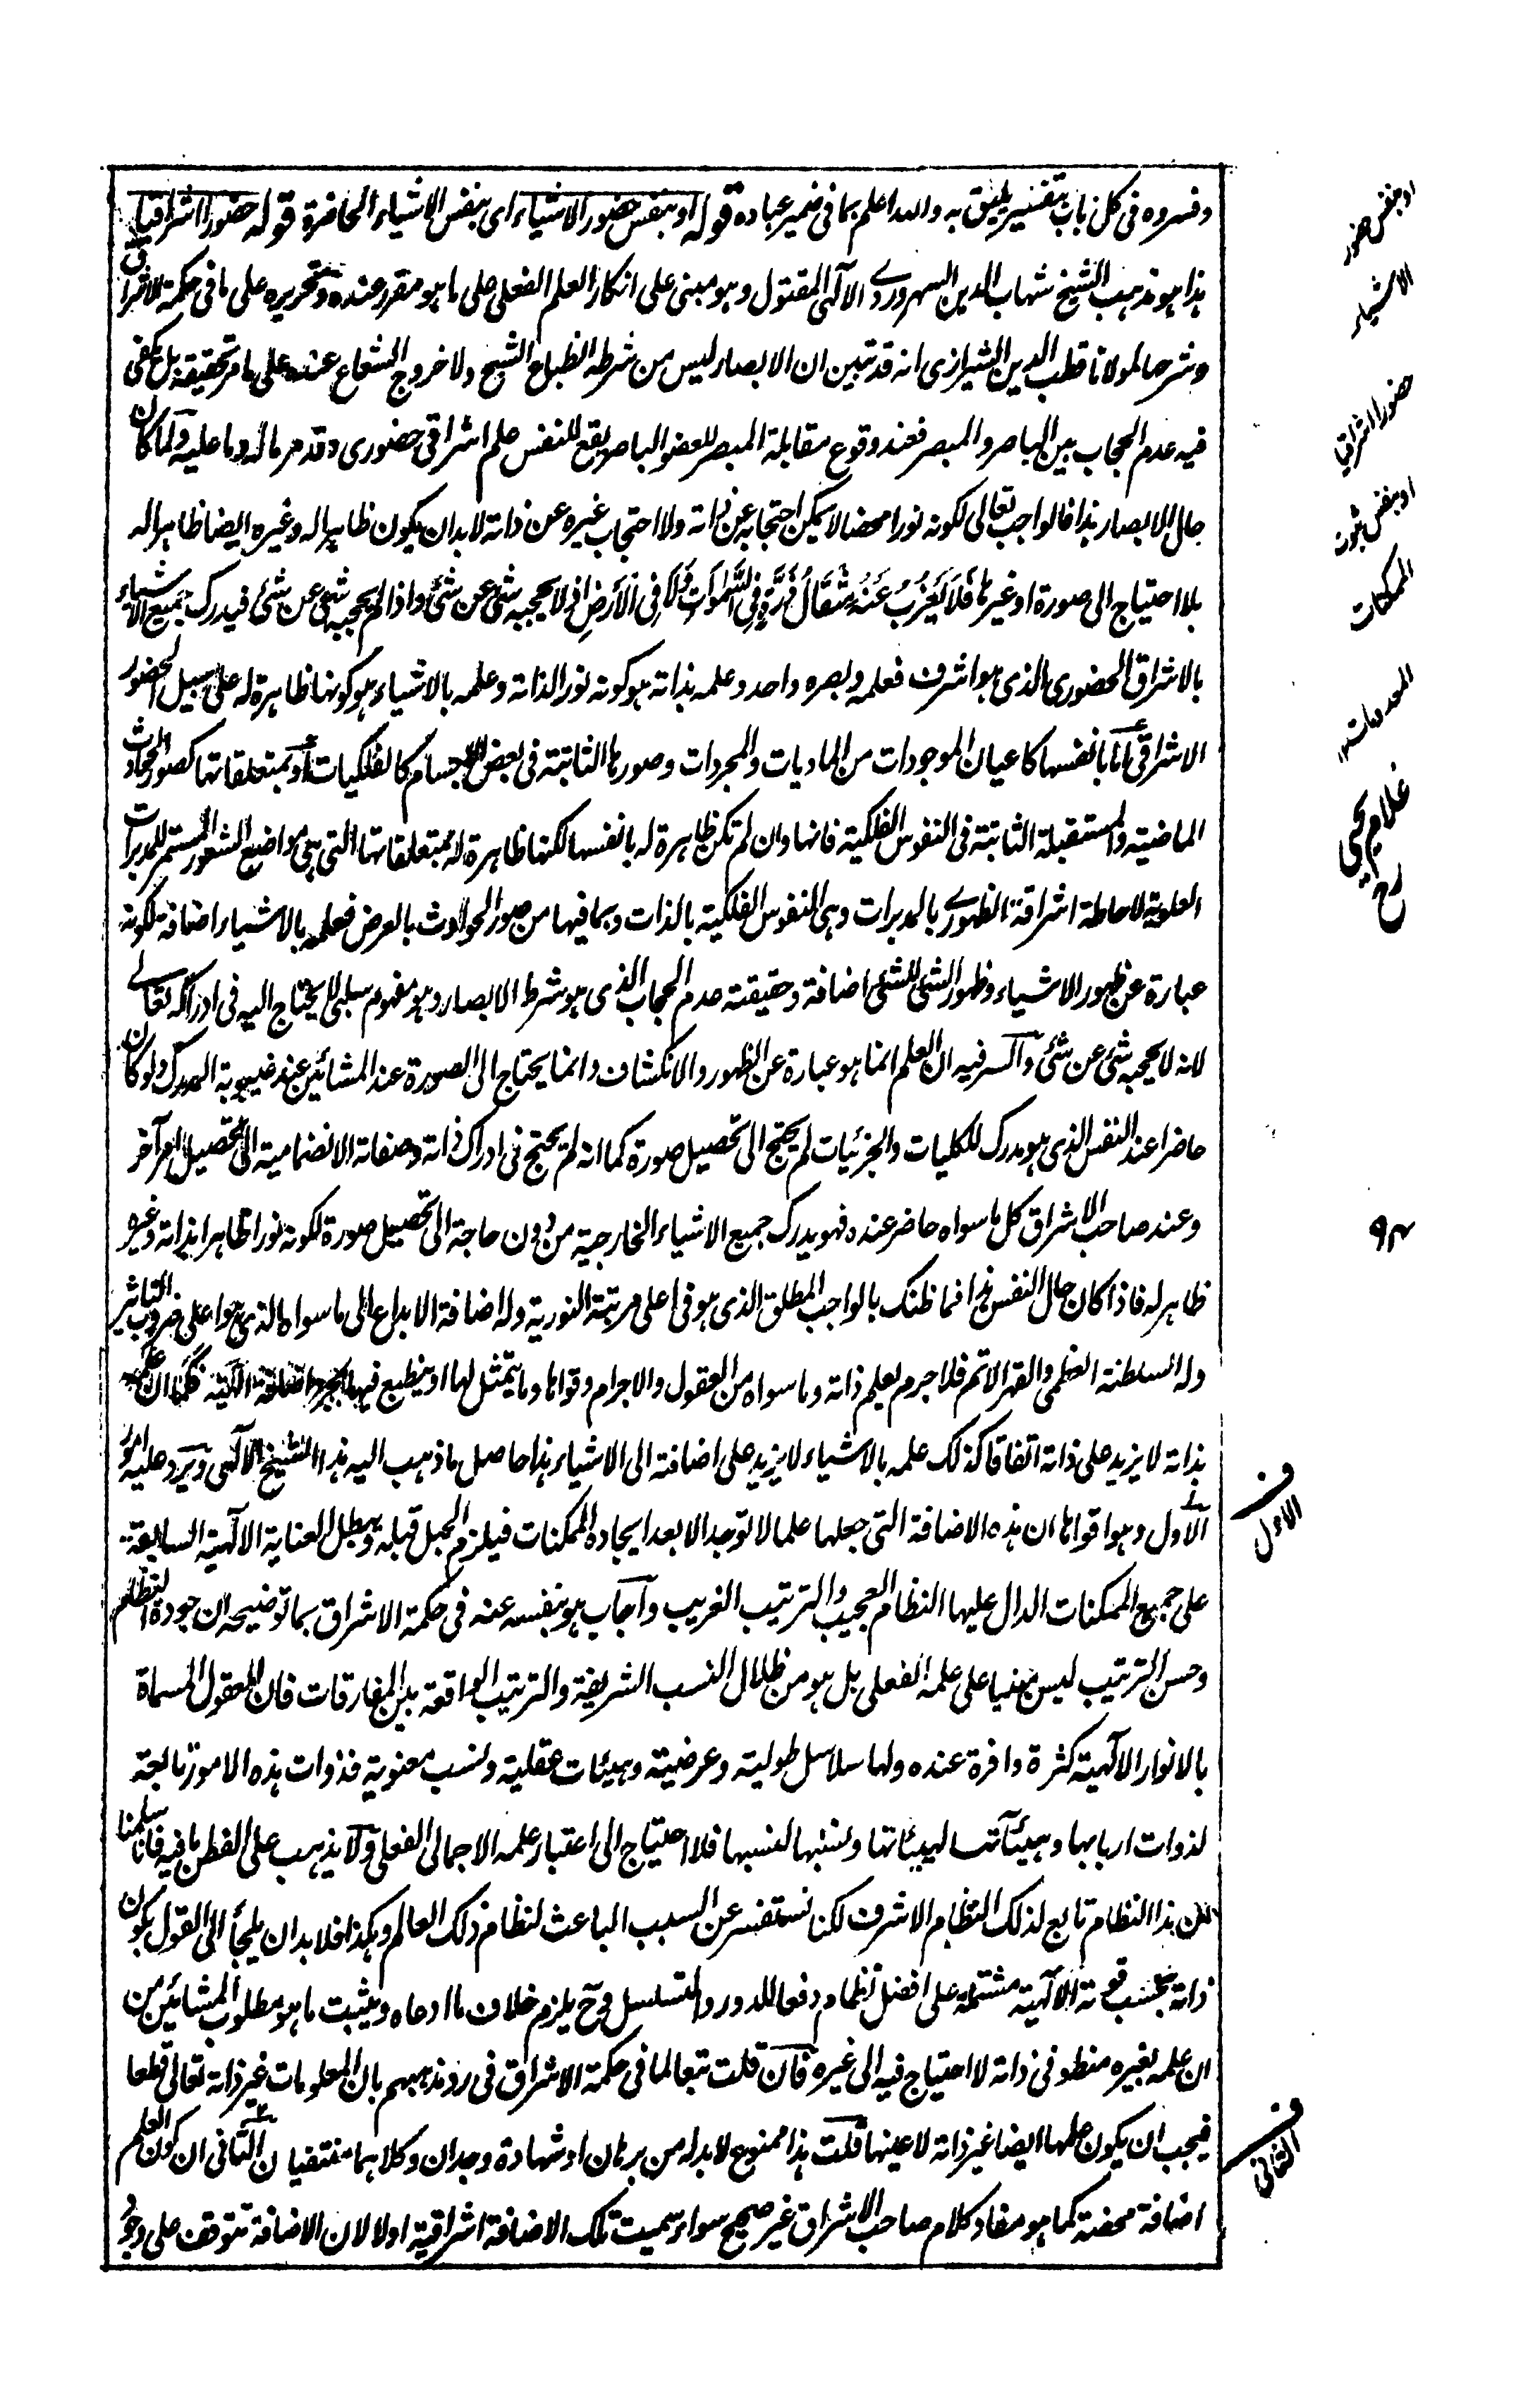 وفسروه فى كل باب بتفسير يليق به والله اعلم بما فى ضمير عباده قوله او بنفس حضور الاشياء اى بنفس الاشياء الحاضرة قوله حضورا اشراقيا
هذا هو مذهب الشيخ شهاب الدين السهروردى الآلهى المقتول وهو مبنى على انكار العلم الفعلى على ما هو مقرر عنده وتحريره على ما فى حكمة الاشراق
وشرحها لمولانا قطب الدين الشيرازى انه قد تبين ان الابصار ليس من شرطه انطباع الشبح ولا خروج الشعاع عنده على ما مر تحقيقه بل يكفى
فيه عدم الحجاب بين الباصر والمبصر فعند وقوع مقابلة المبصر للعضو الباصر يقع للنفس علم اشراقى حضورى وقد مر ماله وما عليه ولما كان
حال الابصار هذا فالواجب تعالى لكونه نورا محضا لا يمكن احتجابه عن ذاته ولا احتجاب غيره عن ذاته لابد ان يكون ظاهرا له وغيره ايضا ظاهرا له
بلا احتياج الى صورة او غيرها فَلَا يَعْزُبُ عَنْهُ مِثْقَالُ ذَرَّةٍ فِى السَّمٰوَاتِ وَلَا فِى الْأَرْضِ اذ لا يحجبه شئ عن شئ واذا لم يحجبه شئ عن شئ فيدرك جميع الاشياء
بالاشراق الحضورى الذى هو اشرف فعلمه وبصره واحد وعلمه بذاته هو كونه نور الذاته وعلمه بالاشياء هو كونها ظاهرة له على سبيل الحضور
الاشراقى اما بانفسها كاعيان الموجودات من الماديات والمجردات وصورها الثابتة فى بعض الاجسام كالفلكيات او بمتعلقاتها كصور الحوادث
الماضية والمستقبلة الثابتة فى النفوس الفلكية فانها وان لم تكن ظاهرة له بانفسها لكنها ظاهرة له بمتعلقاتها التى هى مواضع الشعور المستمر للمدبرات
العلوية لاحاطة اشراقة الظهورى بالمدبرات وهى النفوس الفلكية بالذات وبما فيها من صور الحوادث بالعرض فعلمه بالاشياء اضافة لكونه
عبارة عن ظهور الاشياء وظهور الشئ للشئ اضافة وحقيقته عدم الحجاب الذى هو شرط الابصار وهو مفهوم سلبى لا يحتاج اليه فى ادراكه تعالى
لانه لا يحجبه شئ عن شئ والسر فيه ان العلم انما هو عبارة عن الظهور والانكشاف وانما يحتاج الى الصورة عند المشائين عند غيبوبة المدرك ولو كان
حاضرا عند النفس الذى هو مدرك للكليات والجزئيات لم يحتج الى تحصيل صورة كما انه لم يحتج فى ادراك ذاته وصفاته الانضمامية الى تحصيل امر آخر
وعند صاحب الاشراق كل ما سواه حاضر عنده فهو يدرك جميع الاشياء الخارجية من دون حاجة الى تحصيل صورة لكونه نورا ظاهرا بذاته وغيره
ظاهر له فاذا كان حال النفس هذا فما ظنك بالواجب المطلق الذى هو فى اعلى مرتبة النورية وله اضافة الابداع الى ما سواه الذى هو اعلى ضروب التاثير
وله السلطنة العظمى والقهر الاتم فلا جرم يعلم ذاته وما سواه من العقول والاجرام وقواها وما يتمثل لها او ينطبع فيها بمجرد اضافة فكما ان علمه
بذاته لا يزيد على ذاته اتفاقا كذلك علمه بالاشياء لا يزيد على اضافته الى الاشياء هذا حاصل ما ذهب اليه هذا الشيخ الآلهى ويرد عليه امور
الاول وهو اقواها ان هذه الاضافة التى جعلها علما لا توجد الا بعد ايجاده الممكنات فيلزم الجهل قبله ويبطل العناية الالهية السابقة
على جميع الممكنات الدال عليها النظام العجيب والترتيب الغريب واجاب هو بنفسه عنه فى حكمة الاشراق بما توضيحه ان جودة النظام
وحسن الترتيب ليس مبنيا على علمه الفعلى بل هو من ظلال النسب الشريفة والترتيب الواقعة بين المفارقات فان العقول المسماة
بالانوار الالهية كثرة وافرة عنده ولها سلاسل طولية وعرضية وهيئات عقلية ونسب معنوية فذوات هذه الامور تابعة
لذوات اربابها وهيئاتها لهيئاتها ونسبها لنسبها فلا احتياج الى اعتبار علمه الاجمالى الفعلى ولا يذهب على الفطن ما فيه فانا سلمنا
ان هذا النظام تابع لذلك النظام الاشرف لكنا نستفسر عن السبب الباعث لنظام ذلك العالم وهكذا فلا بد ان يلجأ الى القول بكون
ذاته بحسب الالهية مشتملة على افضل نظام دفعا للدور والتسلسل وح يلزم خلاف ما ادعاه ويثبت ما هو مطلوب المشائين من
ان علمه بغيره منطو فى ذاته لا احتياج فيه الى غيره فان قلت تبعا لما فى حكمة الاشراق فى رد مذهبهم بان المعلومات غير ذاته تعالى قطعا
فيجب ان يكون علمها ايضا غير ذاته لا عينها قلت هذا ممنوع لابد له من برهان او شهادة وجدان وكلاهما منتفيان الثانى ان كون العلم
اضافة محضة كما هو مفاد كلام صاحب الاشراق غير صحيح سواء سميت تلك الاضافة اشراقية اولا لان الاضافة تتوقف على وجود
او بنفس حضور
الاشياء
حضورا اشراقيا
او بنفس ثبوت
الممكنات
المعدومات
غلام يحيى
رح
ف
الاول
ف
الثانى